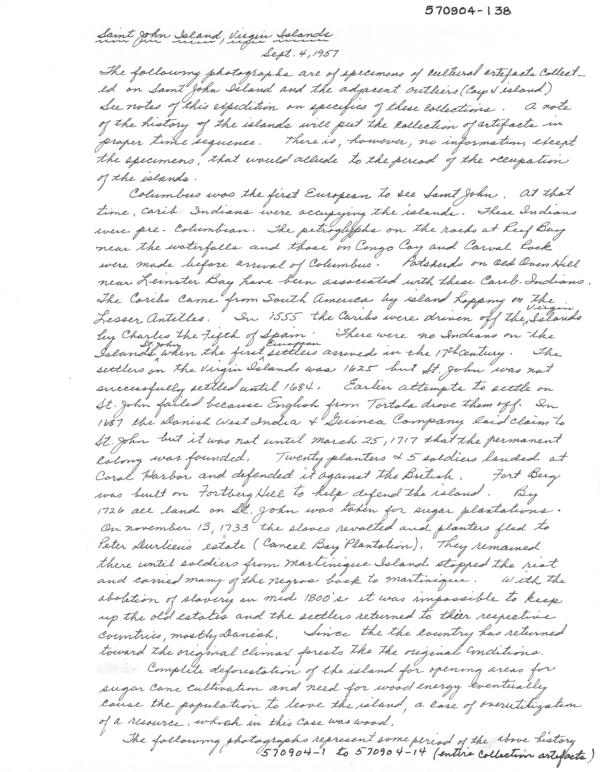 570904-138
Saint John Island, Virgin Islands
Sept. 4, 1957
The following photographs are of specimens of cultural artefacts collect-
ed on Saint John Island and the adjacent outliers (Cays & island)
See notes of this expedition on specifics of these collections. A note
of the history of the islands will put the collection of artifacts in
proper time sequence. There is, however, no information, except
the specimens, that would allude to the period of the occupation
of the islands.
Columbus was the first European to see Saint John. At that
time, Carib Indians were occupying the islands. These Indians
were pre-Columbian. The petroglyphs on the rocks at Reef Bay
near the waterfalls and those on Congo Cay and Carval Rock
were made before arrival of Columbus. Potsherds on Old Oven Hill
near Leinster Bay have been associated with these Carib Indians.
The Caribs came from South America by island hopping on the
Lesser Antilles. In 1555 the Caribs were driven off the Virgin Islands
by Charles the Fifth of Spain. There were no Indians on the
Islands St. John when the first European settlers arrived in the 17th Century. The
settlers on the Virgin Islands was 1625 but St. John was not
successfully settled until 1684. Earlier attempts to settle on
St. John failed because English from Tortola drove them off. In
1687 the Danish West India & Guinea Company laid claim to
St. John but it was not until March 25, 1717 that the permanent
colony was founded. Twenty planters & 5 soldiers landed at
Coral Harbor and defended it against the British. Fort Berg
was built on Fortberg Hill to help defend the island. By
1726 all land on St. John was taken for sugar plantations.
On november 13, 1733 the slaves revolted and planters fled to
Peter Durlieus estate (Caneel Bay Plantation). They remained
there until soldiers from Martinique Island stopped the riot
and carried many of the negros back to Martinique. With the
abolition of slavery in mid 1800's it was impossible to keep
up the old estates and the settlers returned to their respective
countries, mostly Danish. Since the the country has returned
toward the original climax forests the the original conditions.
Complete deforestation of the island for opening areas for
sugar cane cultivation and need for wood energy eventually
cause the population to leave the island, a case of overutilization
of a resource, which in this case was wood.
The following photographs represent some period of the above history
570904-1 to 570904-14 (entire collection artefacts)